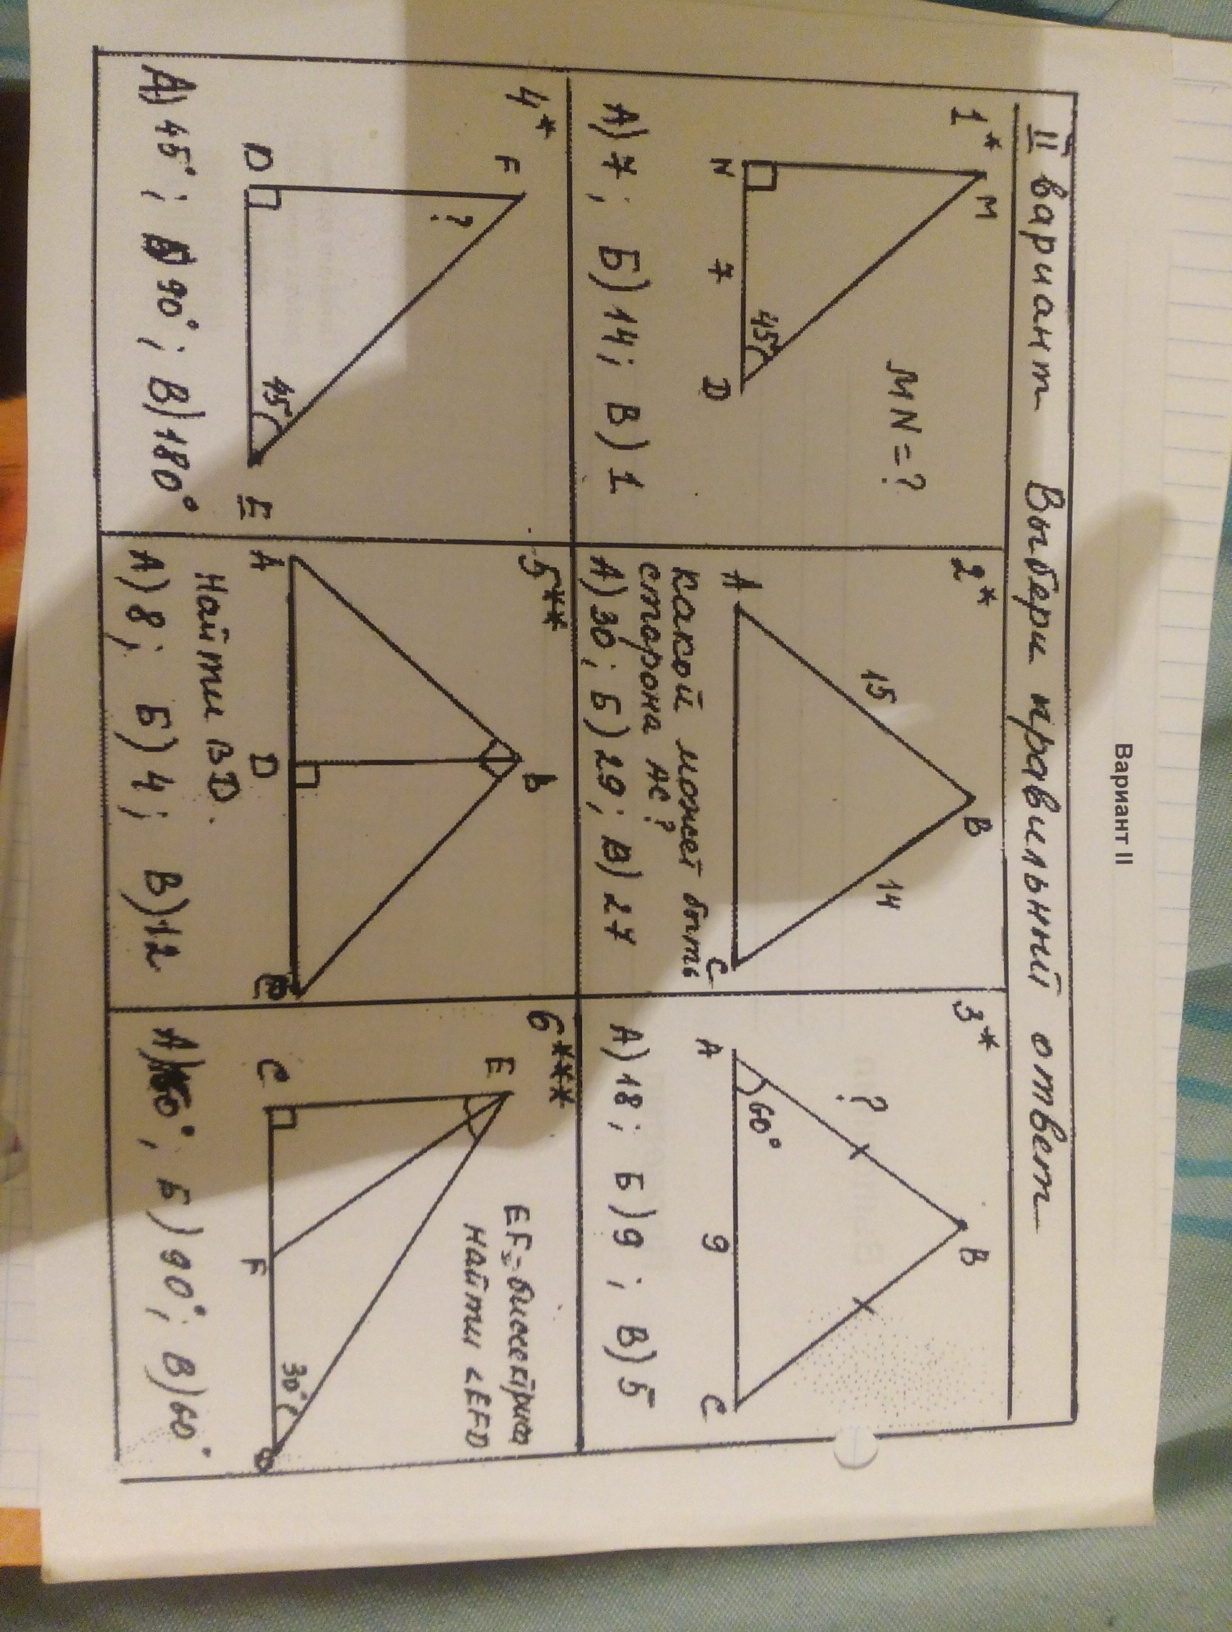 Вариант II
II вариант Выбери правильный ответ
1*
M
MN = ?
N
7
45°
D
А) 7; Б) 14; В) 1
2*
B
15
14
A
C
какой может быть
сторона AC?
А) 30; Б) 29; В) 27
3*
B
?
60°
A
9
C
А) 18; Б) 9; В) 5
4*
F
?
D
45°
E
А) 45°; Б) 90°; В) 180°
5**
B
A
D
Найти BD.
А) 8; Б) 4; В) 12
6***
E
EF - биссектриса
найти ∠EFD
C
F
30°
D
Б) 90°; В) 60°